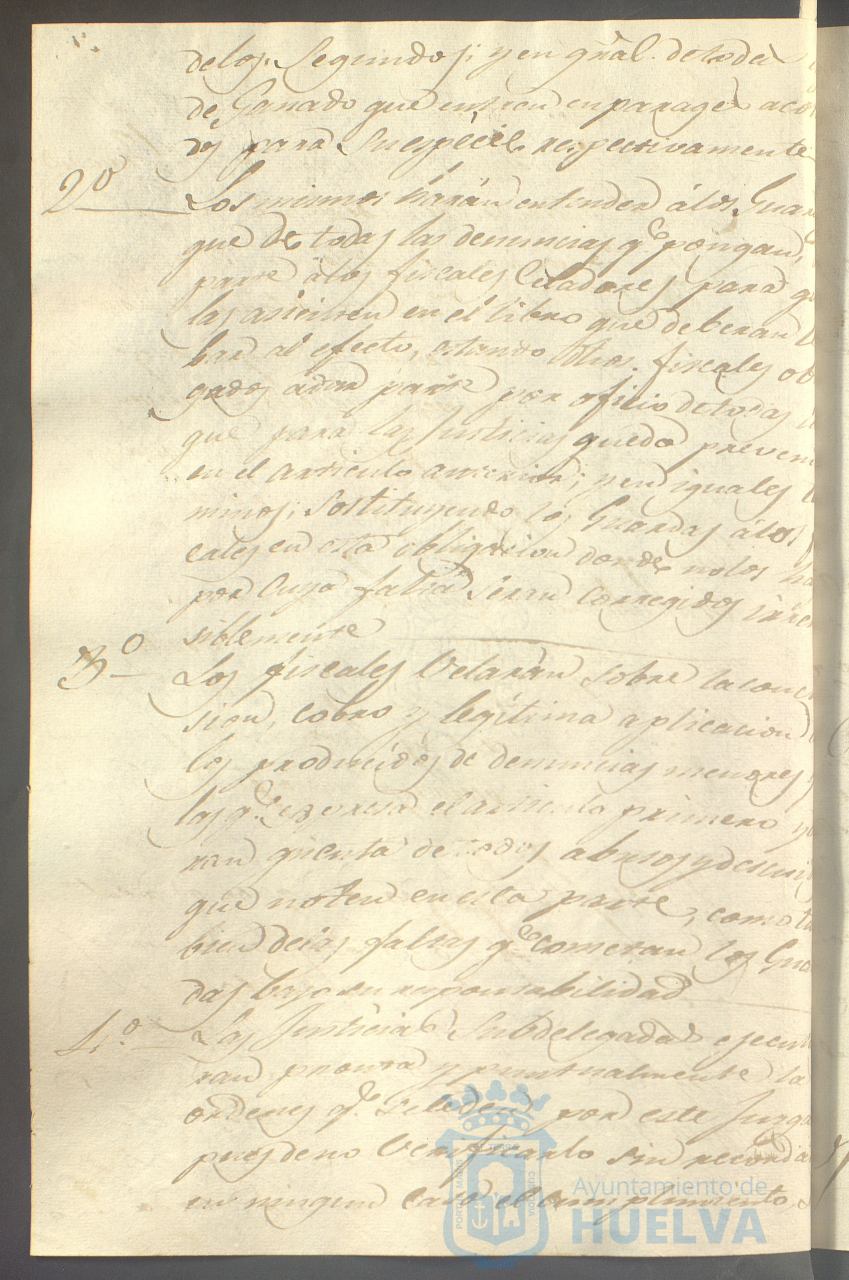 de los Segundos; y en gral. de toda
de Ganado que entren en parages aco
dos para su especie respectivamente
2º Los mismos harán entender á los Guar
que de todas las denuncias qe pongan,
parte á los fiscales Celadores para q
las asienten en el libro que deberan
bar al efecto, estando dhos. fiscales ob
gados á dar parte por oficio de todas
que para las Justicias queda preven
en el articulo anterior; y en iguales
minos; sostituyendo los Guardas á los
cales en esta obligacion donde no los ha
por cuya falta serán corregidos irre
siblemente
3º Los fiscales Velarán sobre la
sion, cobro y legítima aplicacion
los producidos de denuncias menores
las qe. expresa el articulo primero y
ran cuenta de todos abusos y descui
que noten en esta parte, como ta
bien de las faltas qe cometan los Gua
das bajo su responsabilidad
4º Las Justicias Subdelegadas ejecut
ran pronta y puntualmente la
ordenes qe. se le den por este Juzga
pues de no Verificarlo sin recorda
en ningun caso el cumplimiento
PORTUS MARIS
CUSTODIA
Ayuntamiento de
HUELVA